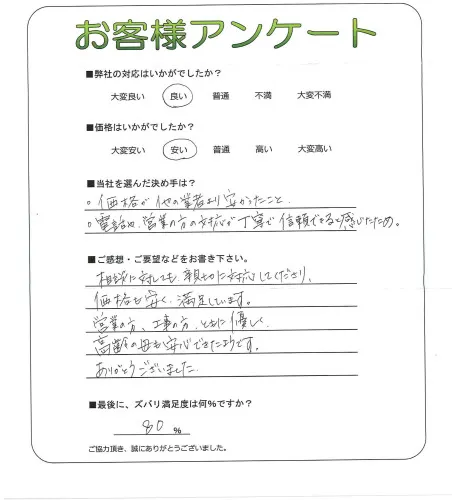 お客様アンケート
■弊社の対応はいかがでしたか?
大変良い 良い 普通 不満 大変不満
■価格はいかがでしたか?
大変安い 安い 普通 高い 大変高い
■当社を選んだ決め手は?
。価格が他の業者より安かったこと
。電話や、営業の方の対応が丁寧で信頼できると感じたため。
■ご感想・ご要望などをお書き下さい。
相談に対しても、親切に対応してくださり、
価格も安く、満足しています。
営業の方、工事の方、ともに優しく、
高齢の母も安心できたようです。
ありがとうございました。
■最後に、ズバリ満足度は何%ですか?
80 %
ご協力頂き、誠にありがとうございました。